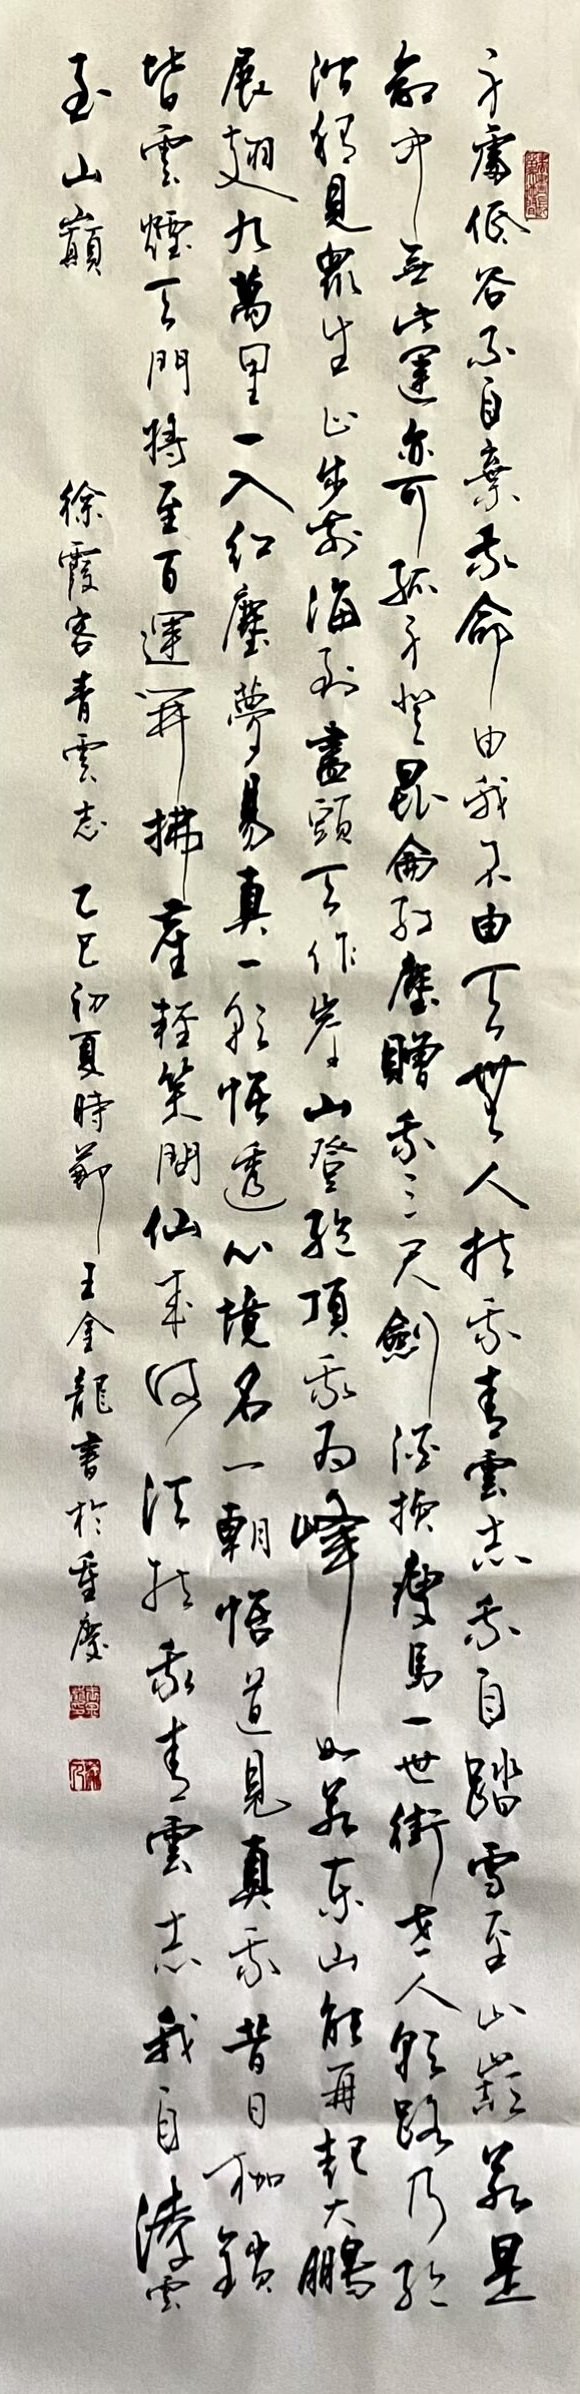 身處低谷不自棄我命由我不由天無人扶我青雲志我自踏雪至山巔若是
命中無此運亦可孤身登昆侖紅塵贈我三尺劍酒換瘦馬一世街世人朝路乃紅
塵我見眾生山步前海到盡頭天作岸山登絕頂我為峰如若東山能再起大鵬
展翅九萬里一入紅塵夢易真一朝悟透心境名一朝悟道見真我昔日枷鎖
皆雲煙天門將至百運開拂塵輕笑問仙來何須扶我青雲志我自凌雲
至山巔
徐霞客青雲志 乙巳初夏時節王金龍書於重慶